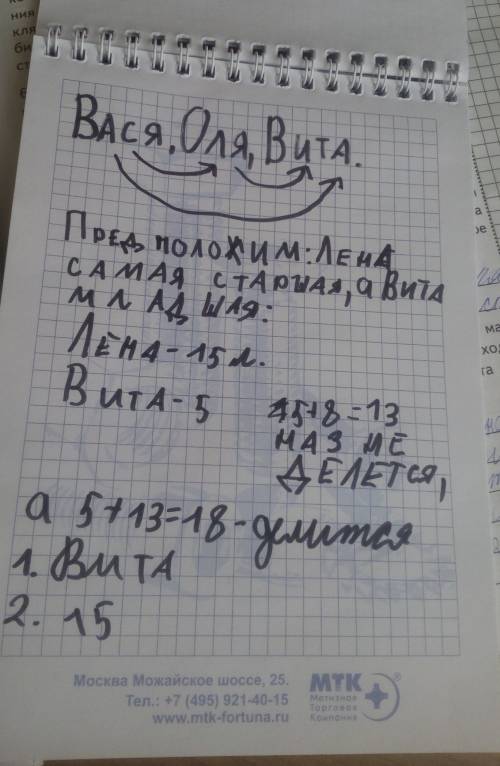 Вася, Оля, Вита.
Предположим: Лена
самая старшая, а Вита
младшля:
Лена - 15 л.
Вита - 5 5+8=13
на 3 не
делется,
а 5+13=18 - делится
1. Вита
2. 15
Москва Можайское шоссе, 25.
Тел.: +7 (495) 921-40-15
www.mtk-fortuna.ru
МТК®
Метизная
Торговая
Компания